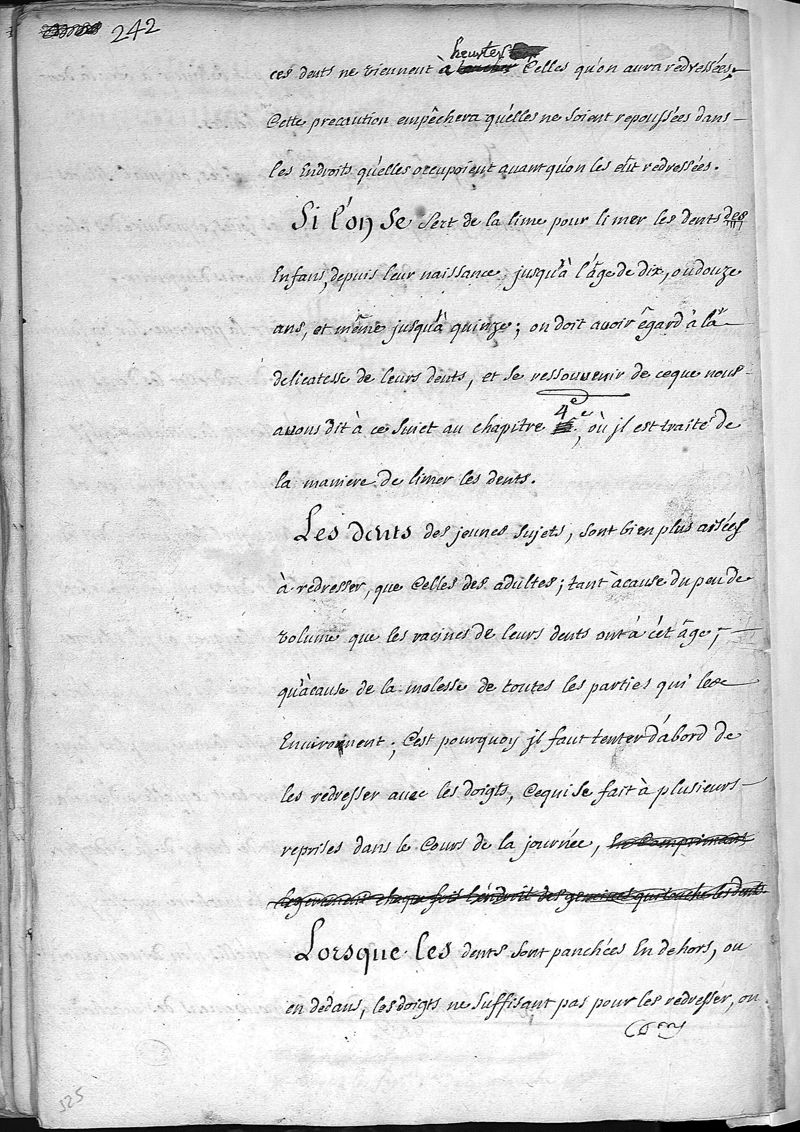 242
heurter
ces dents ne viennent à toucher celles qu'on aura redressées.
Cette precaution empêchera qu'elles ne soient repoussées dans
les Endroits qu'elles occupoient auant qu'on les eût redressées.
Si l'on se sert de la lime pour limer les dents des
Enfans, depuis leur naissance jusqu'à l'âge de dix, ou douze
ans, et même jusqu'à quinze; on doit auoir égard à la
delicatesse de leurs dents, et se ressouuenir de ceque nous
4e
auons dit à ce suiet au chapitre e, où jl est traité de
la maniere de limer les dents.
Les dents des jeunes sujets, sont bien plus aisées
à redresser, que celles des adultes; tant àcause du peu de
volume que les racines de leurs dents ont à cét âge,
qu'àcause de la molesse de toutes les parties qui les
Environnent; c'est pourquoy jl faut tenter d'abord de
les redresser auec les doigts, cequi se fait à plusieurs
reprises dans le cours de la journée, en comprimant
legerement chaque fois l'endroit des genciues qui touche les dents.
Lorsque les dents sont panchées En dehors, ou
en dedans, les doigts ne suffisant pas pour les redresser, on
325